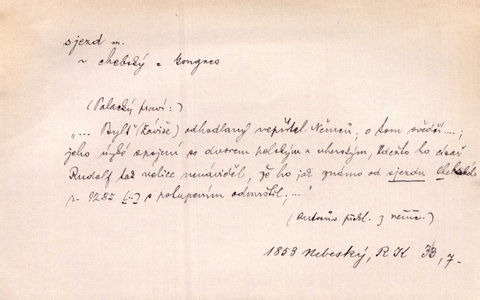 sjezd m.
~ chebský = kongres
(Palacký praví:)
"... Bylť (Záviše) odhodlaný nepřítel Němců, o tom svědčí ...;
jeho úzké spojení se dvorem polským a uherským, kdežto ho císař
Rudolf tak velice nenáviděl, že ho již známo od sjezdu chebského
r. (..) s potupením odmrštil; ..."
(Antonín překl. z něm.)
1853 Nebeský, RK 38, 7.